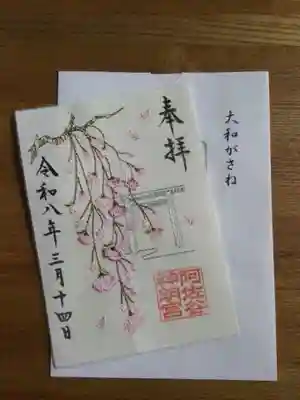 奉拝
令和八年三月十四日
阿佐谷
神明宮
大和がさね